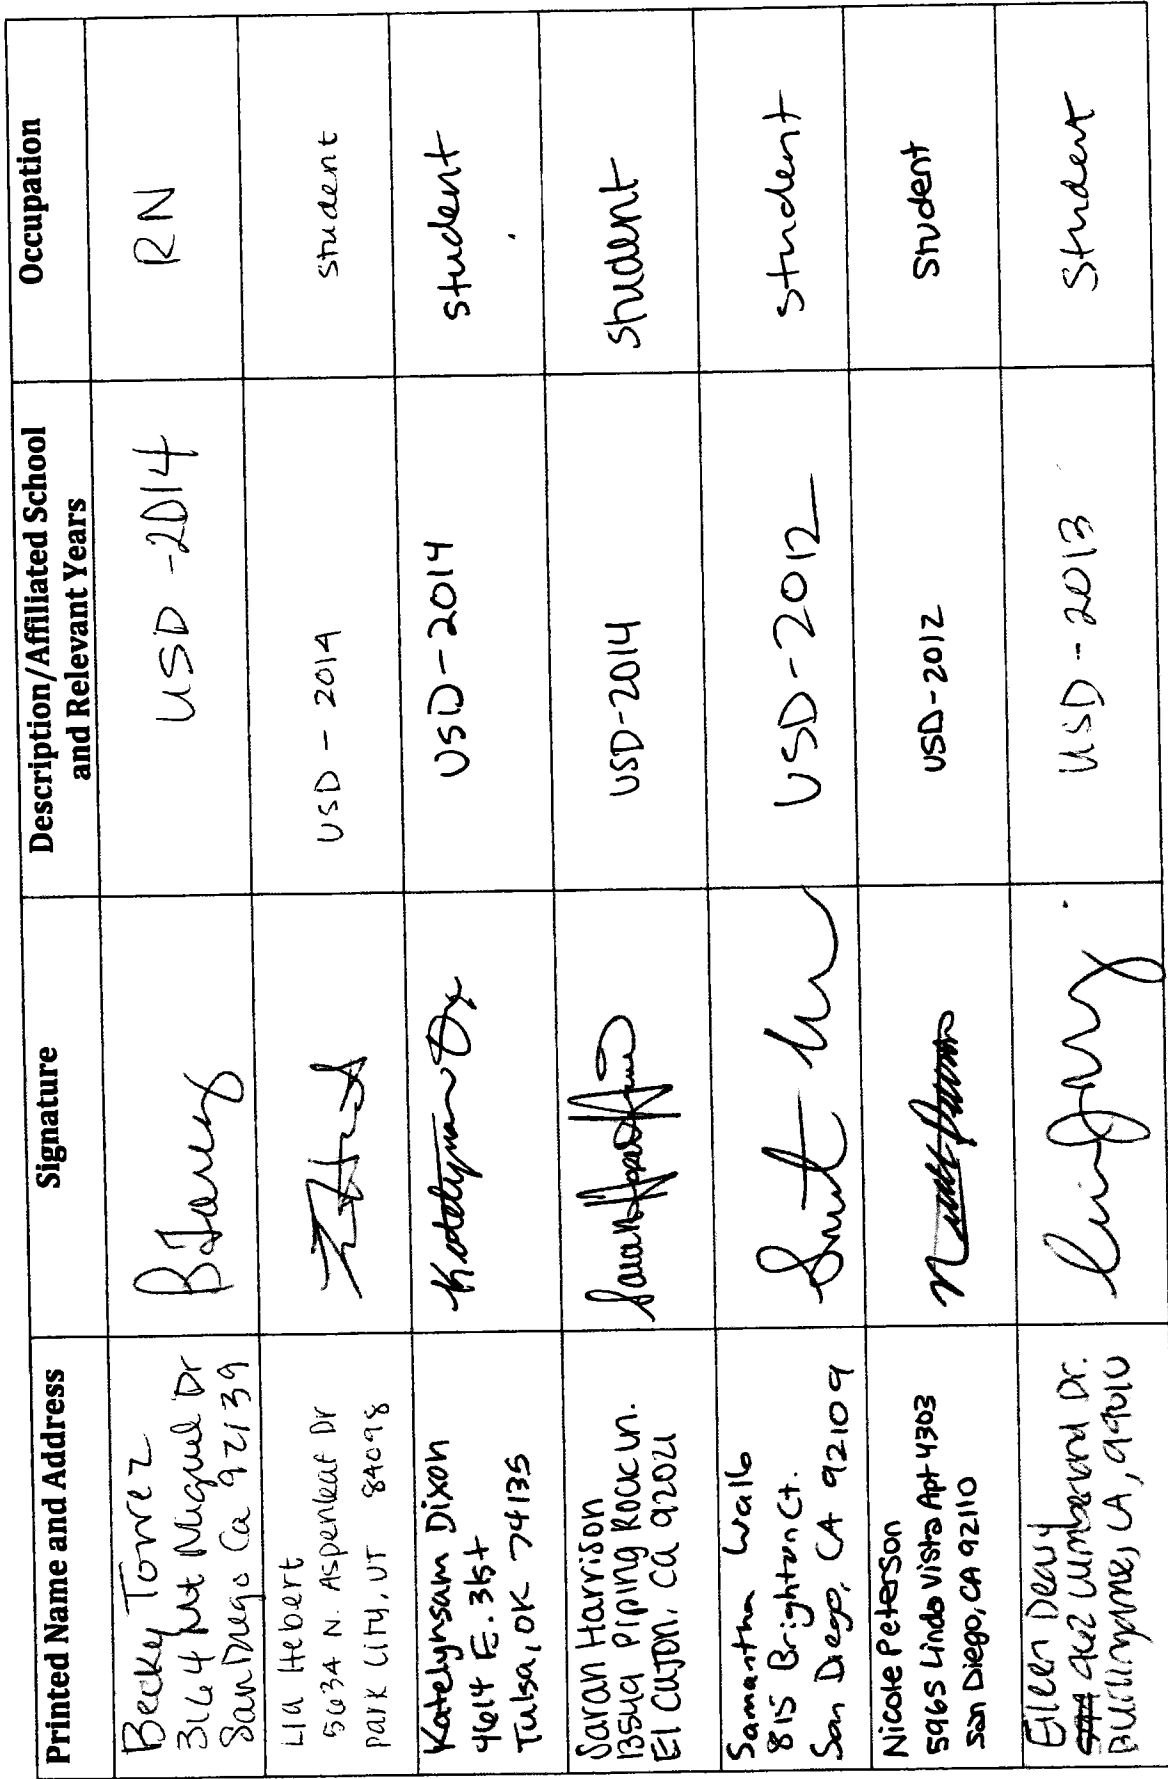 Printed Name and Address
Signature
Description/Affiliated School
and Relevant Years
Occupation
Becky Torrez
3164 Mt Miguel Dr
San Diego Ca 92139
USD - 2014
RN
Lia Hebert
5634 N. Aspenleaf Dr
Park City, UT 84098
USD - 2014
student
Katelynsam Dixon
4614 E. 31st
Tulsa, OK 74135
USD - 2014
student
Sarah Harrison
Piping Rock Ln.
El Cajon, Ca 92021
USD-2014
student
Samantha Walb
815 Brighton Ct.
San Diego, CA 92109
USD-2012
student
Nicole Peterson
5965 Linda Vista Apt 4303
San Diego, CA 92110
USD-2012
Student
Eileen
Dr.
USD - 2013
Student